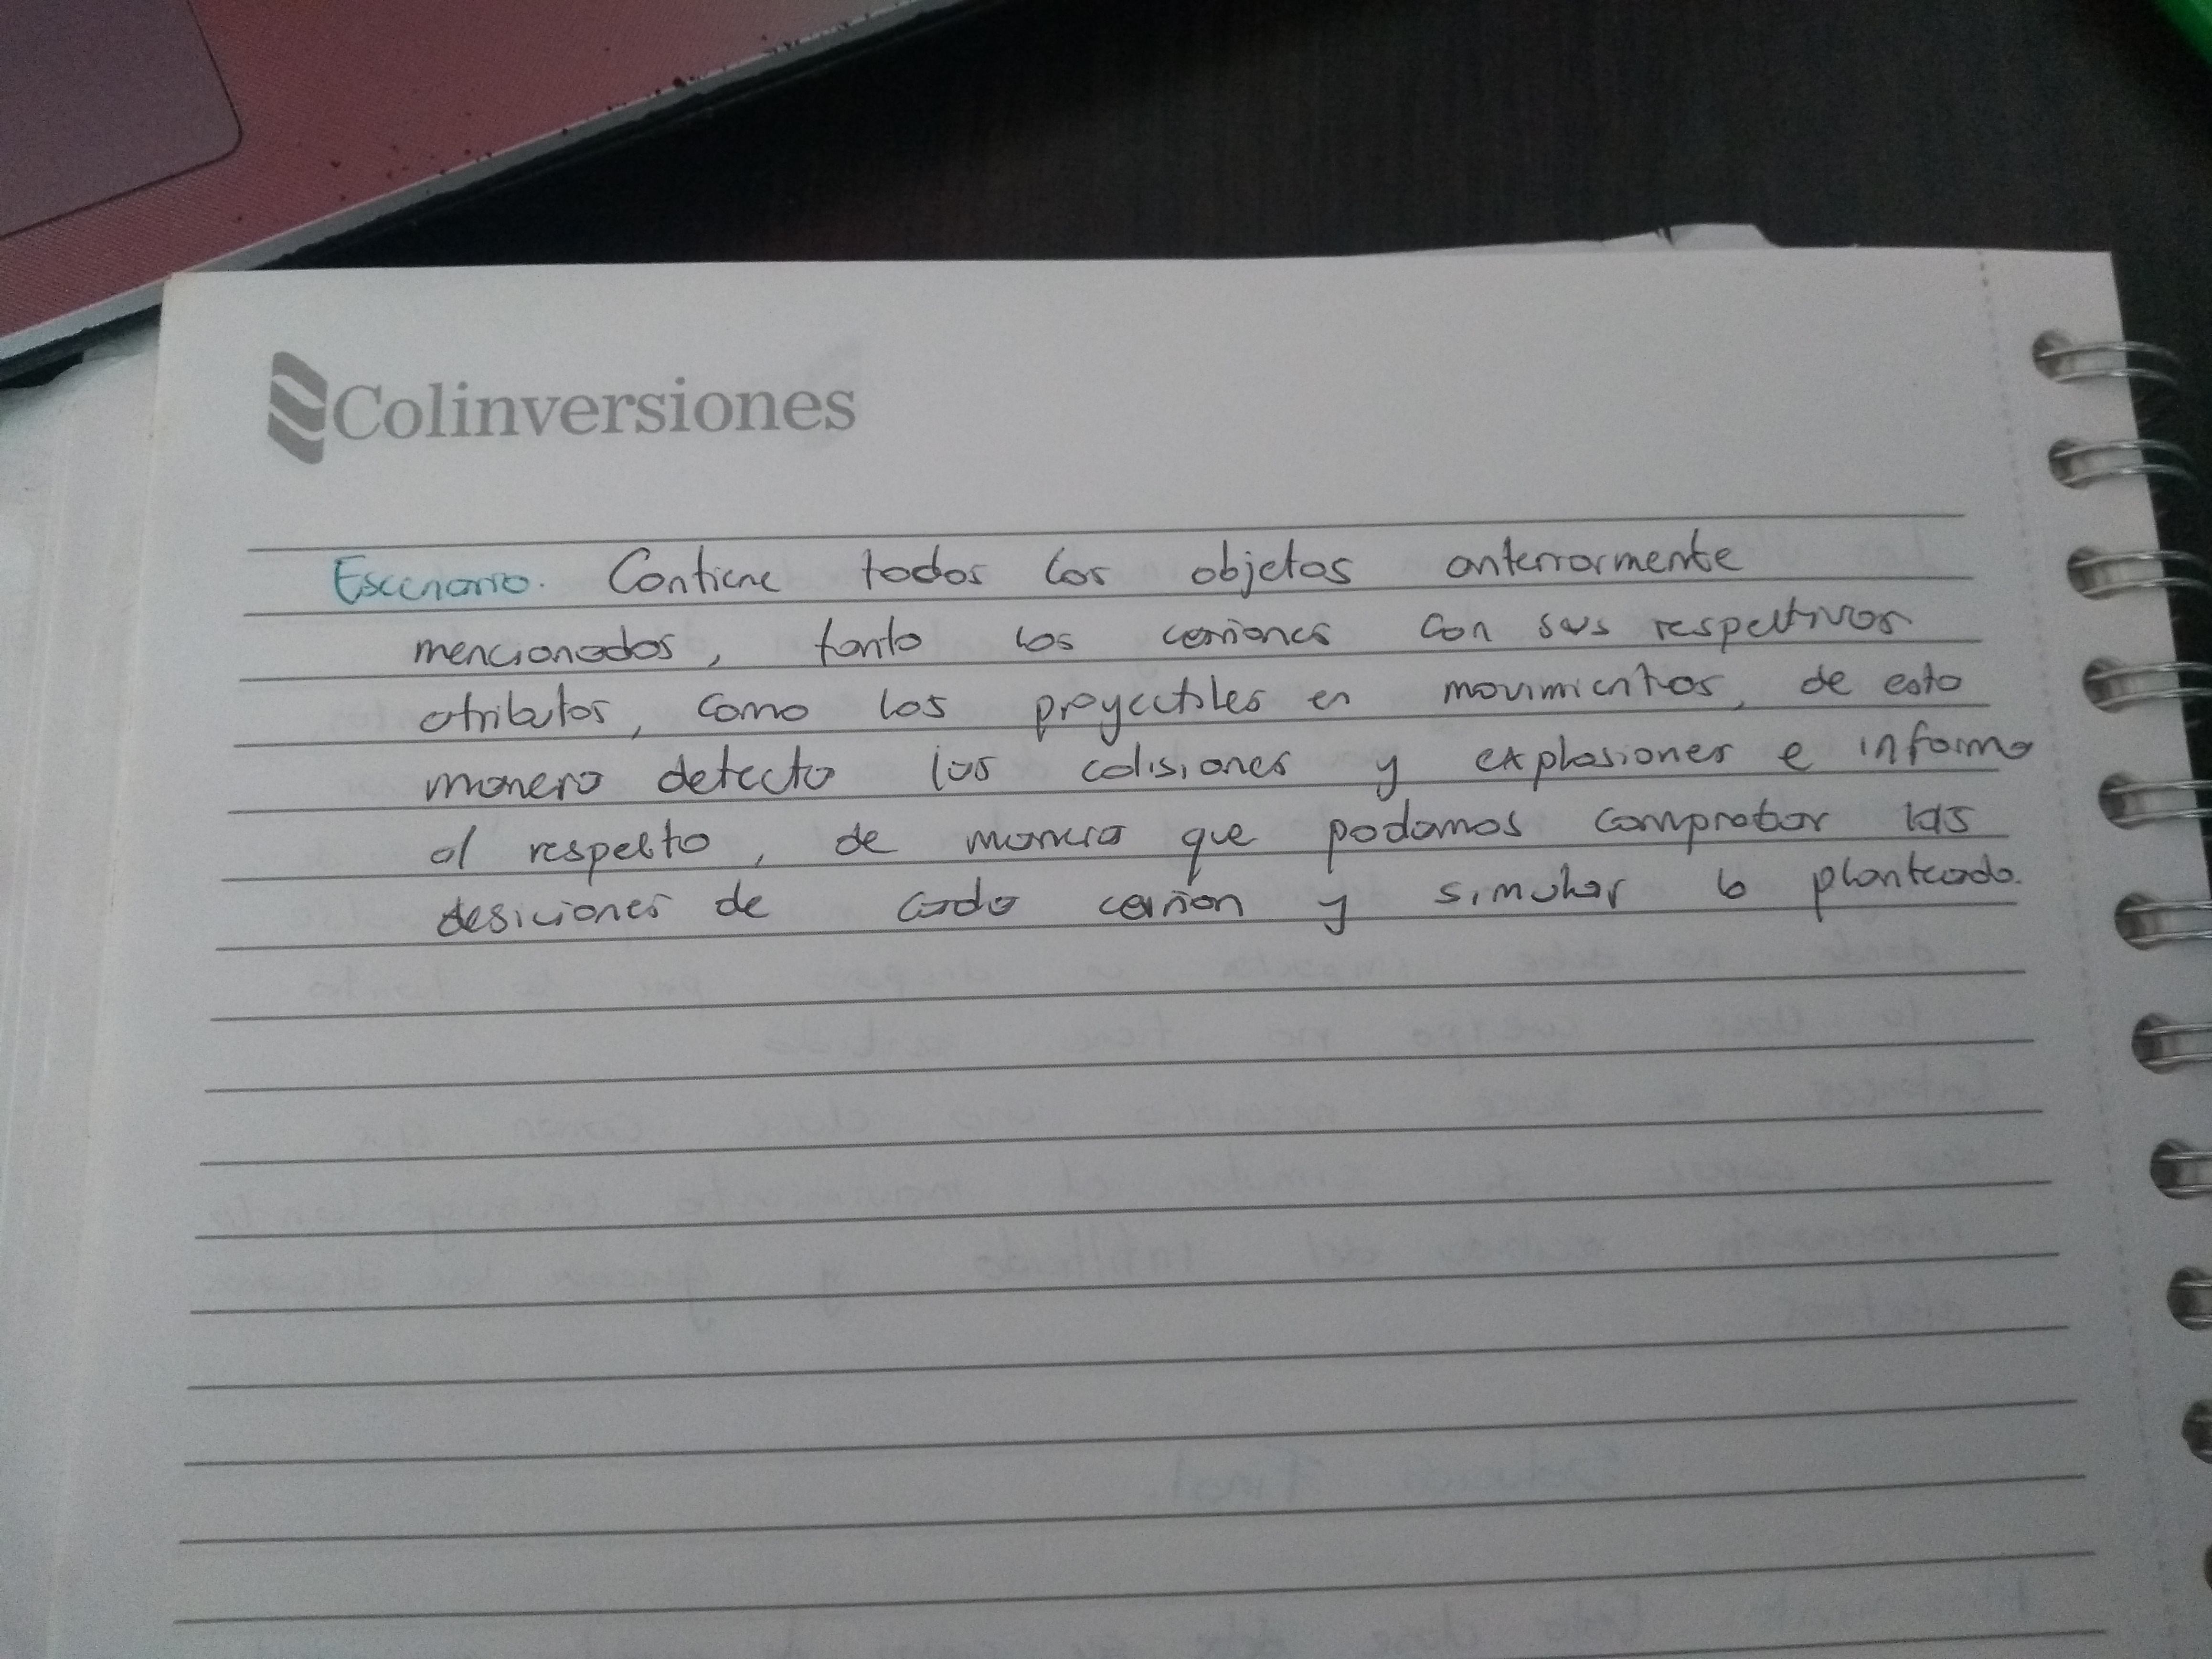 Colinversiones
Escenario. Contiene todos los objetos anteriormente
mencionados, tanto los cañones con sus respectivos
atributos, como los proyectiles en movimientos, de esta
manera detecta las colisiones y explosiones e informa
al respecto, de manera que podamos comprobar las
desiciones de cada cañon y simular lo planteado.